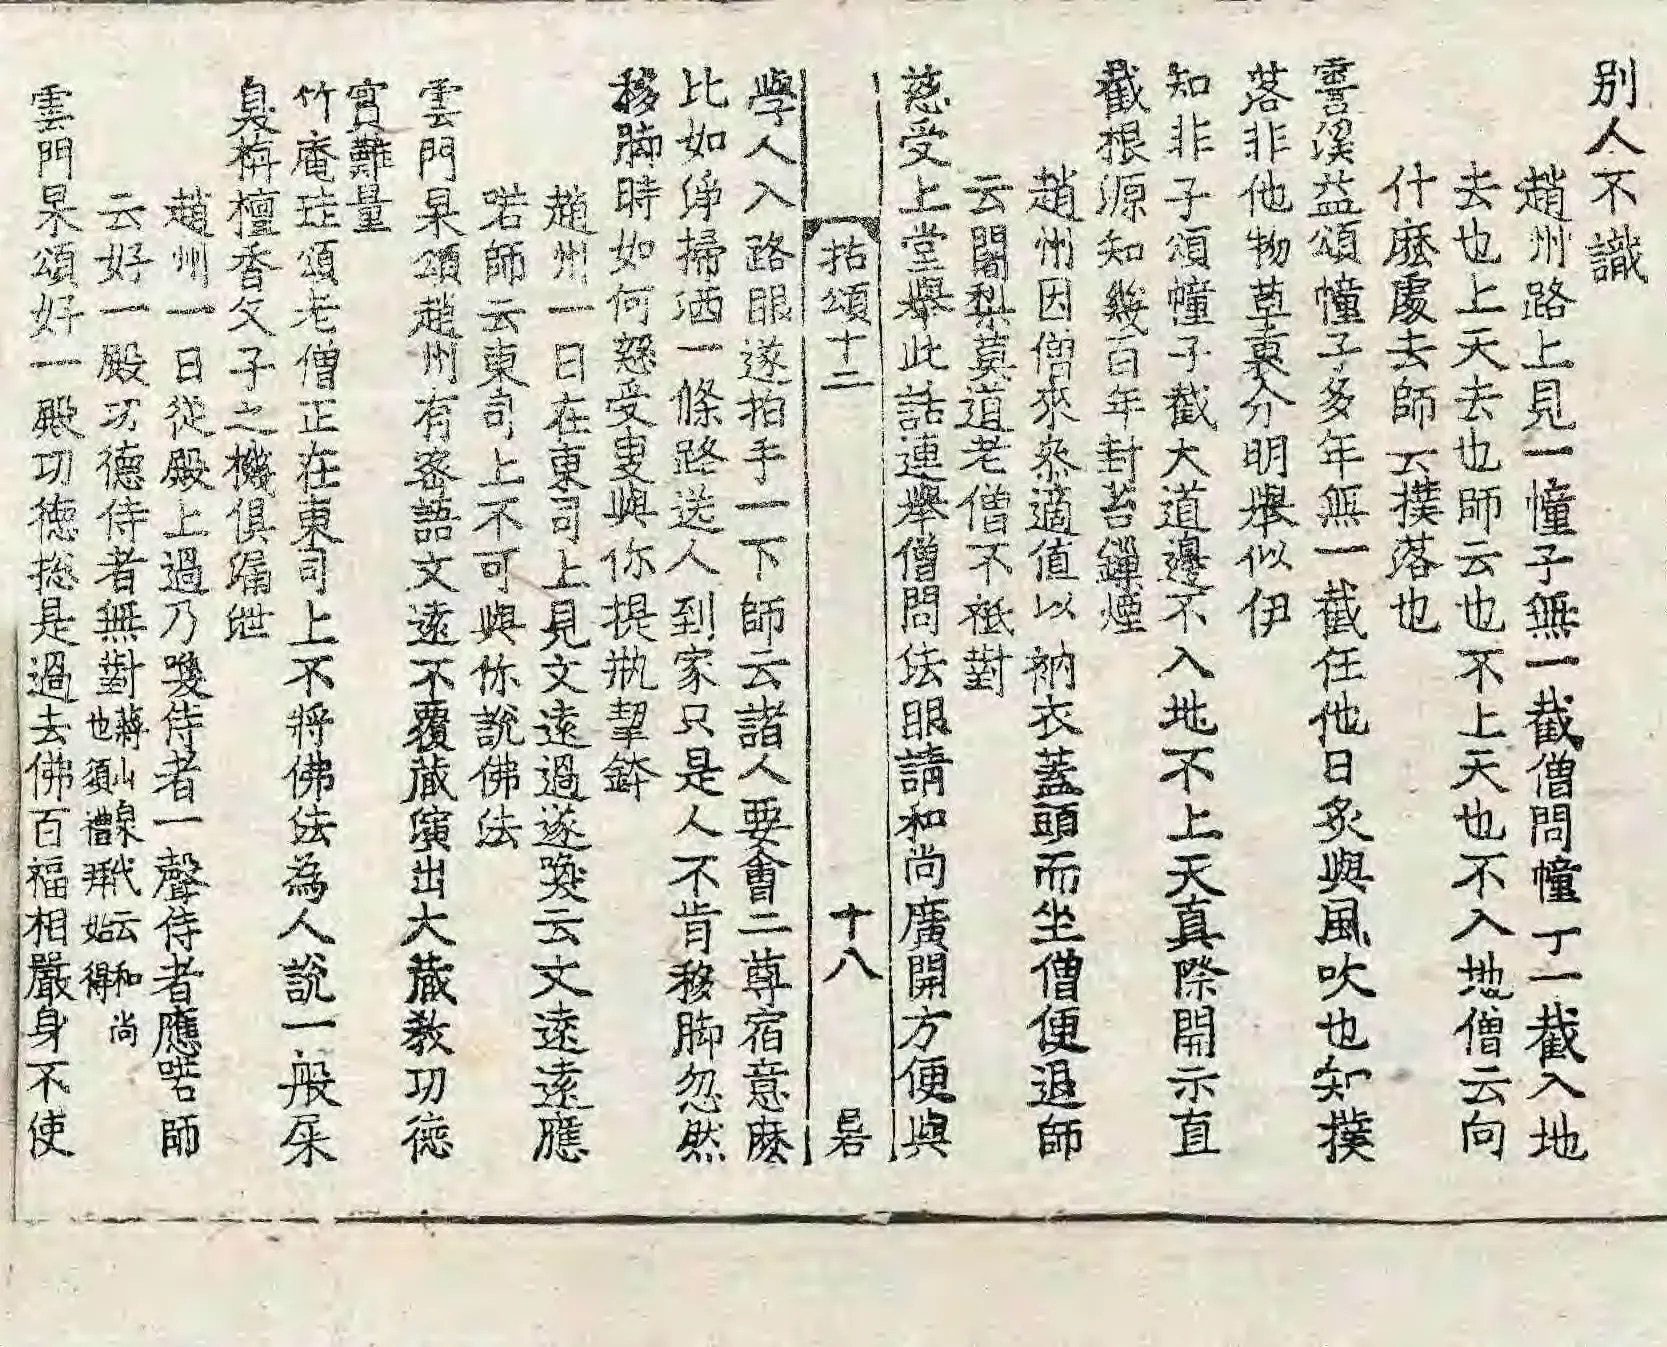 別人不識
趙州路上見一幢子無一截僧問幢丁一截入地
去也上天去也師云也不上天也不入地僧云向
什麼處去師云撲落也
雪溪益頌幢子多年無一截任他日炙與風吹也知撲
落非他物草裏分明舉似伊
知非子頌幢子截大道邊不入地不上天真際開示直
截根源知幾百年封苔鏁煙
趙州因僧來叅適值以衲衣蓋頭而坐僧便退師
云闍梨莫道老僧不祇對
慈受上堂舉此話連舉僧問法眼請和尚廣開方便與
拈頌十二 十八
學人入路眼遂拍手一下師云諸人要會二尊宿意麼
比如淨掃洒一條路送人到家只是人不肯移脚忽然
移脚時如何怒受叓與你提瓶挈鉢
趙州一日在東司上見文遠過遂喚云文遠遠應
喏師云東司上不可與你說佛法
雲門杲頌趙州有密語文遠不覆藏演出大藏教功德
實難量
竹庵珪頌老僧正在東司上不將佛法為人說一般屎
臭栴檀香父子之機俱漏泄
趙州一日從殿上過乃喚侍者一聲侍者應喏師
云好一殿功德侍者無對蔣山泉代云和尚也須禮拜始得
雲門杲頌好一殿功德捴是過去佛百福相嚴身不使